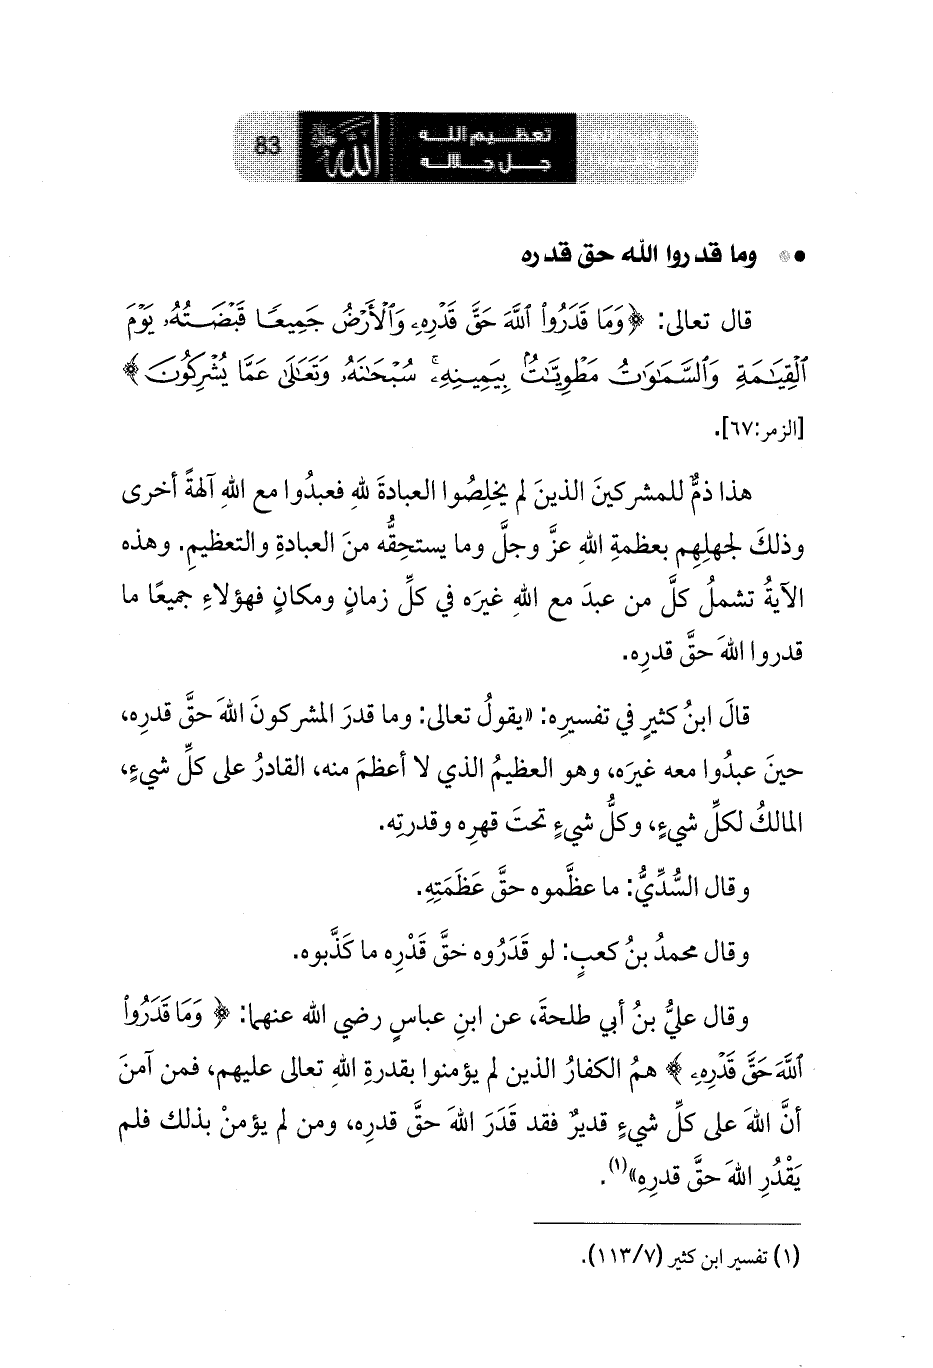 83
الله جل جلاله
تعظيم الله
جل جلاله
وما قدروا الله حق قدره
قال تعالى: ﴿وَمَا قَدَرُوا۟ ٱللَّهَ حَقَّ قَدْرِهِۦ وَٱلْأَرْضُ جَمِيعًا قَبْضَتُهُۥ يَوْمَ
ٱلْقِيَٰمَةِ وَٱلسَّمَٰوَٰتُ مَطْوِيَّٰتٌۢ بِيَمِينِهِۦ ۚ سُبْحَٰنَهُۥ وَتَعَٰلَىٰ عَمَّا يُشْرِكُونَ﴾
[الزمر:٦٧].
هذا ذمٌّ للمشركينَ الذينَ لم يخلِصُوا العبادةَ للهِ فعبدُوا مع اللهِ آلهةً أخرى
وذلكَ لجهلِهِم بعظمةِ اللهِ عزَّ وجلَّ وما يستحِقُّه منَ العبادةِ والتعظيمِ. وهذه
الآيةُ تشملُ كلَّ من عبدَ مع اللهِ غيرَه في كلِّ زمانٍ ومكانٍ فهؤلاءِ جميعًا ما
قدروا اللهَ حقَّ قدرِه.
قالَ ابنُ كثيرٍ في تفسيرِه: «يقولُ تعالى: وما قدرَ المشركونَ اللهَ حقَّ قدرِه،
حينَ عبدُوا معه غيرَه، وهو العظيمُ الذي لا أعظمَ منه، القادرُ على كلِّ شيءٍ،
المالكُ لكلِّ شيءٍ، وكلُّ شيءٍ تحتَ قهرِه وقدرتِه.
وقال السُّدِّيُّ: ما عظَّموه حقَّ عَظَمَتِهِ.
وقال محمدُ بنُ كعبٍ: لو قَدَرُوه حقَّ قَدْرِه ما كَذَّبوه.
وقال عليُّ بنُ أبي طلحةَ، عن ابنِ عباسٍ رضي الله عنهما: ﴿ وَمَا قَدَرُوا۟
ٱللَّهَ حَقَّ قَدْرِهِۦ ﴾ همُ الكفارُ الذين لم يؤمنوا بقدرةِ اللهِ تعالى عليهم، فمن آمنَ
أنَّ اللهَ على كلِّ شيءٍ قديرٌ فقد قَدَرَ اللهَ حقَّ قدرِه، ومن لم يؤمنْ بذلك فلم
يَقْدُرِ اللهَ حقَّ قدرِهِ»(١).
(١) تفسير ابن كثير (٧/ ١١٣).